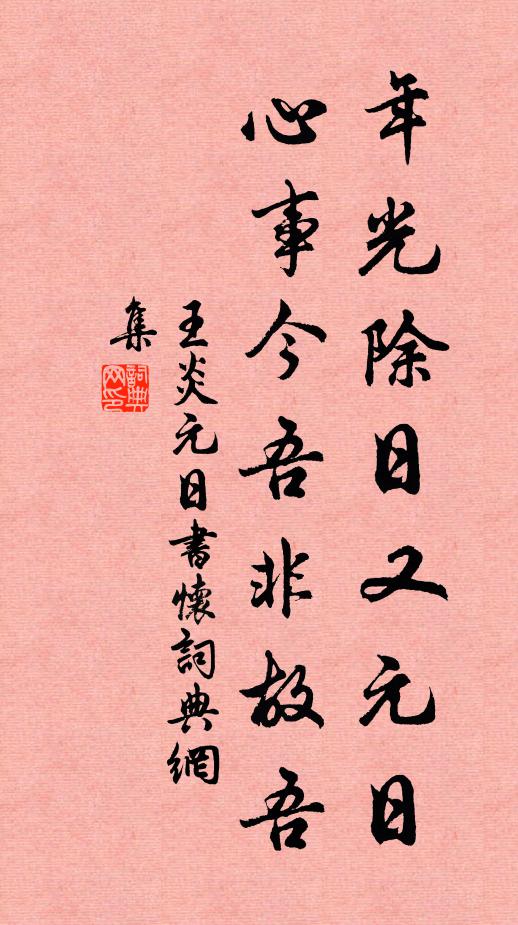 年光除日又元日
心事今吾非故吾
王炎元日書懷詞典網
集
詞典網印